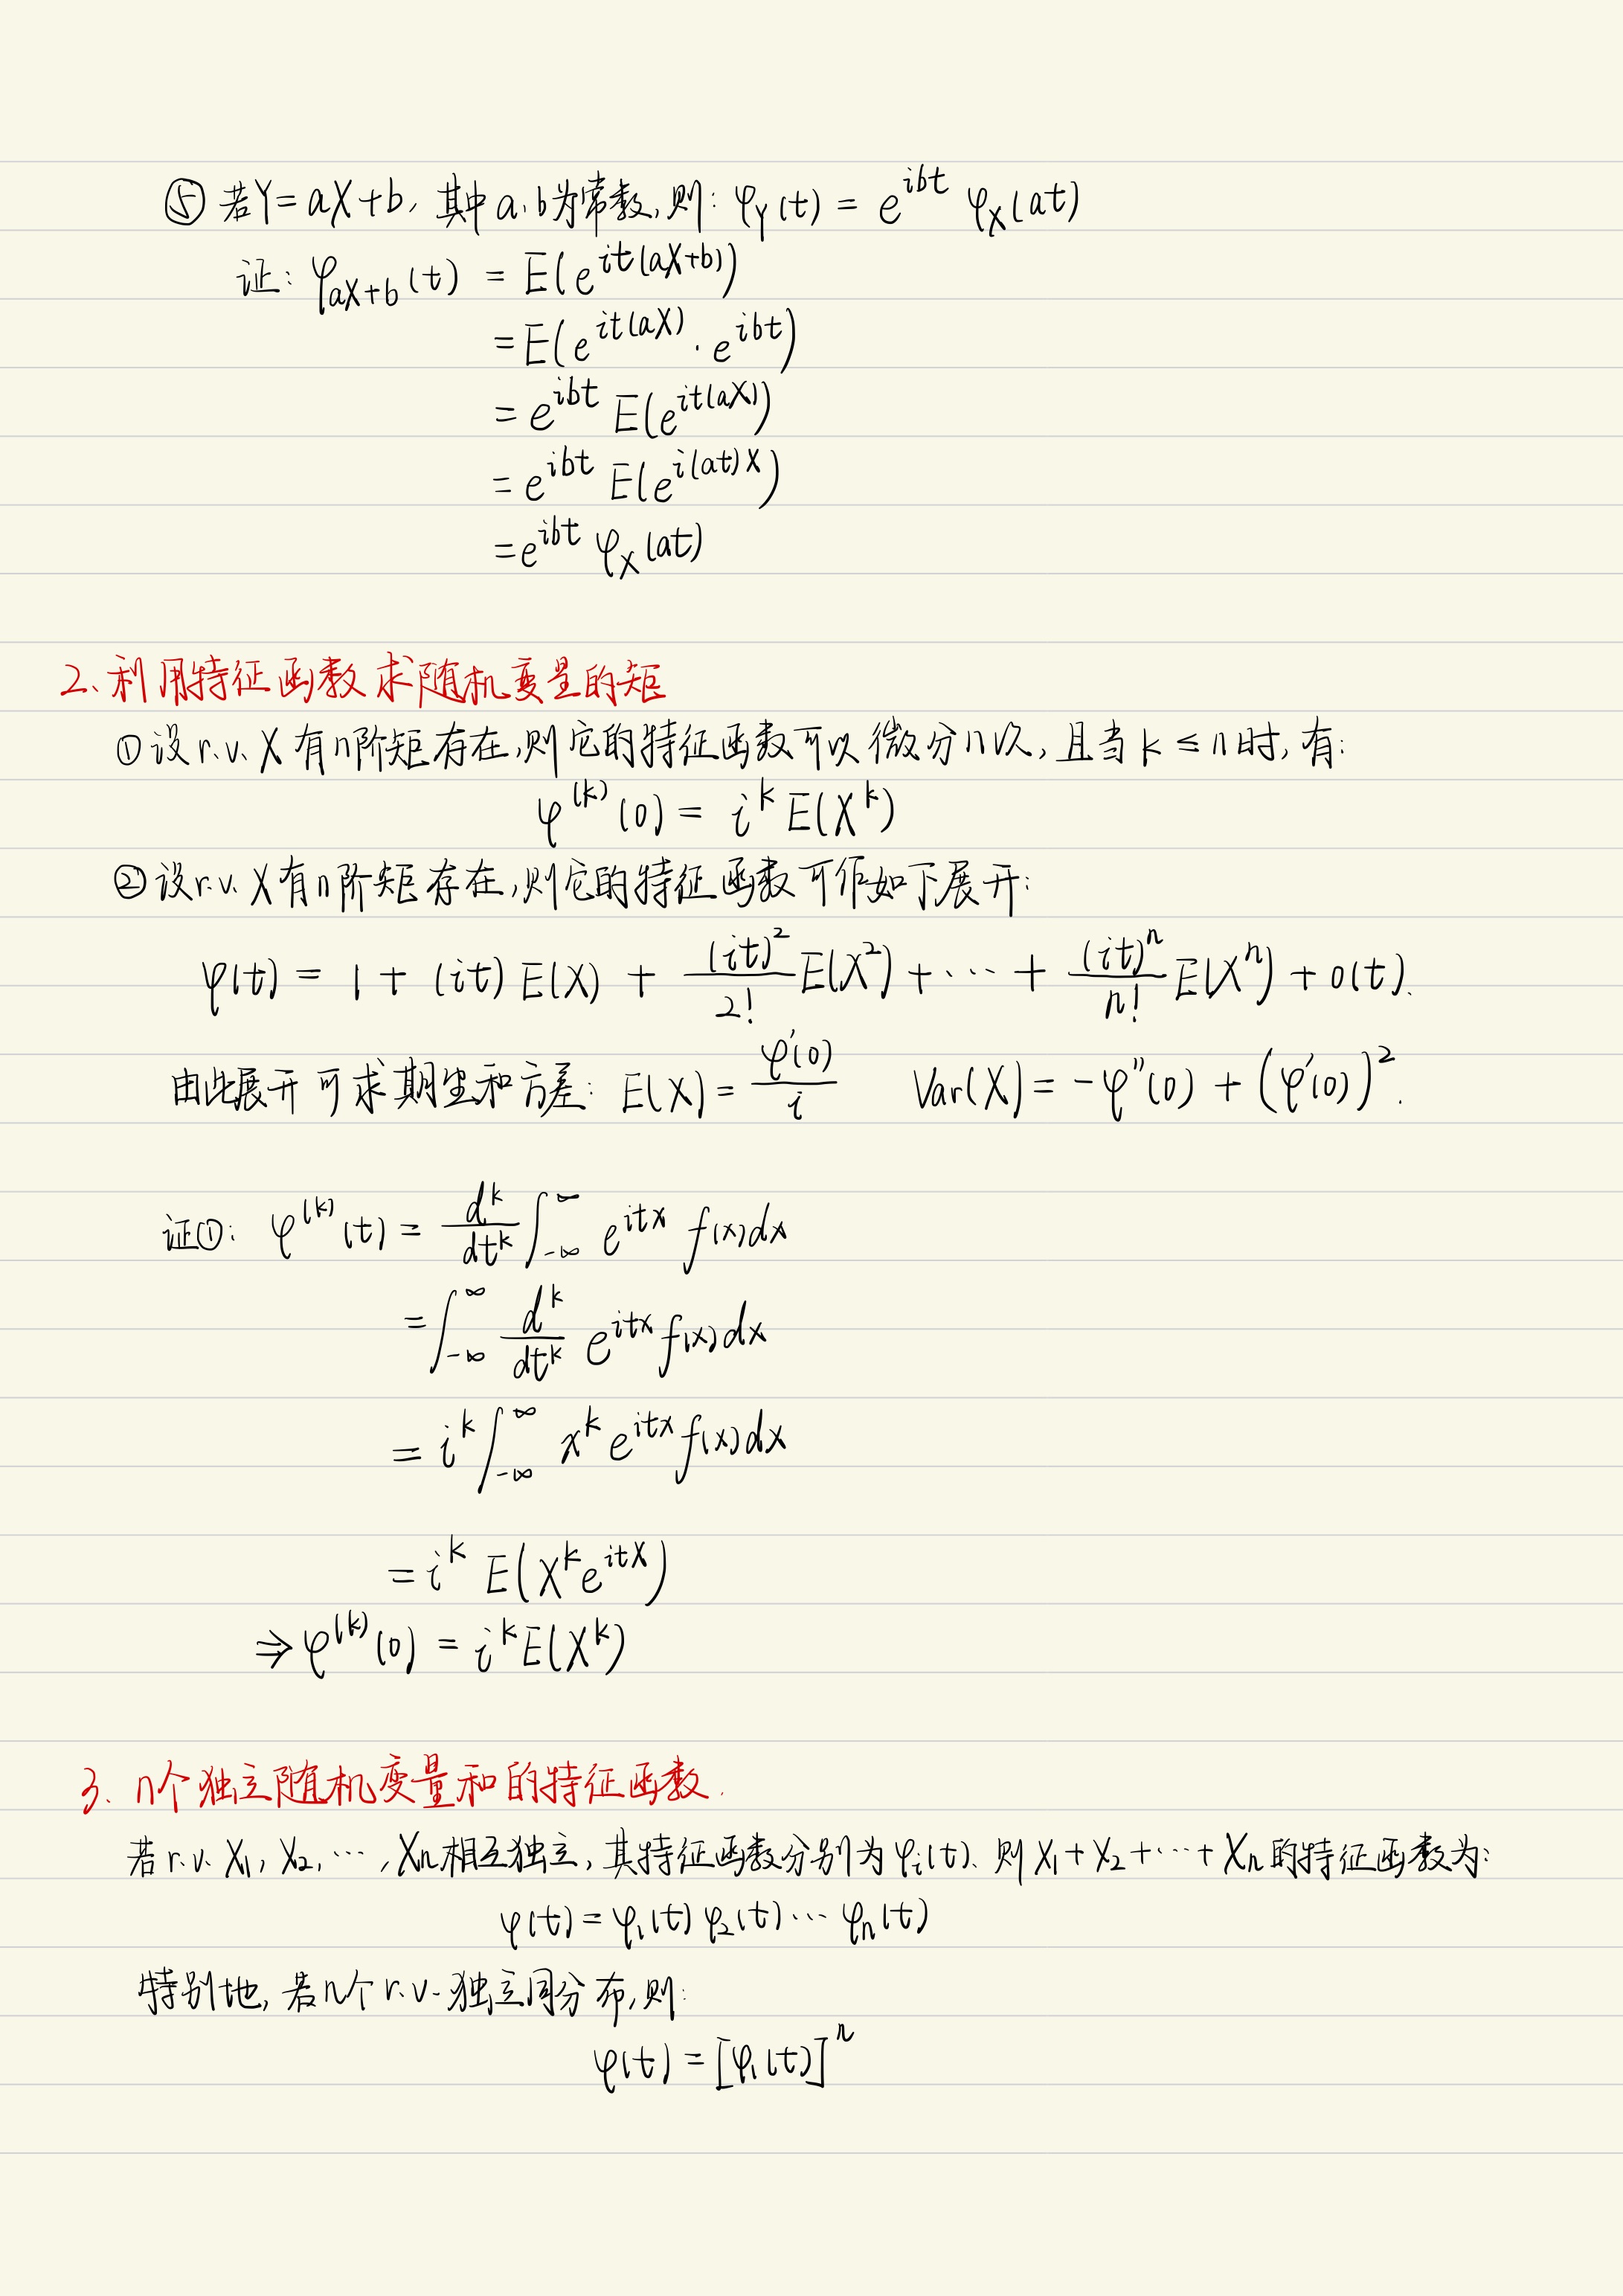 ⑤ 若Y=aX+b, 其中a,b为常数,则: φ_Y(t) = e^{ibt} φ_X(at)
证: φ_{aX+b}(t) = E(e^{it(aX+b)})
= E(e^{it(aX)} · e^{ibt})
= e^{ibt} E(e^{it(aX)})
= e^{ibt} E(e^{i(at)X})
= e^{ibt} φ_X(at)
2、利用特征函数求随机变量的矩
① 设 r.v. X 有n阶矩存在,则它的特征函数可以微分n次, 且当 k ≤ n 时, 有:
φ^{(k)}(0) = i^k E(X^k)
② 设 r.v. X 有n阶矩存在,则它的特征函数可作如下展开:
φ(t) = 1 + (it) E(X) + \frac{(it)^2}{2!} E(X^2) + ⋯ + \frac{(it)^n}{n!} E(X^n) + o(t).
由此展开可求期望和方差: E(X) = \frac{φ'(0)}{i} Var(X) = -φ''(0) + (φ'(0))^2.
证①: φ^{(k)}(t) = \frac{d^k}{dt^k} ∫_{-∞}^{∞} e^{itx} f(x)dx
= ∫_{-∞}^{∞} \frac{d^k}{dt^k} e^{itx} f(x)dx
= i^k ∫_{-∞}^{∞} x^k e^{itx} f(x)dx
= i^k E(X^k e^{itX})
⇒ φ^{(k)}(0) = i^k E(X^k)
3、n个独立随机变量和的特征函数.
若 r.v. X_1, X_2, ⋯, X_n 相互独立, 其特征函数分别为 φ_i(t)、则 X_1+X_2+⋯+X_n 的特征函数为:
φ(t) = φ_1(t) φ_2(t) ⋯ φ_n(t)
特别地, 若n个 r.v. 独立同分布,则:
φ(t) = [φ_1(t)]^n